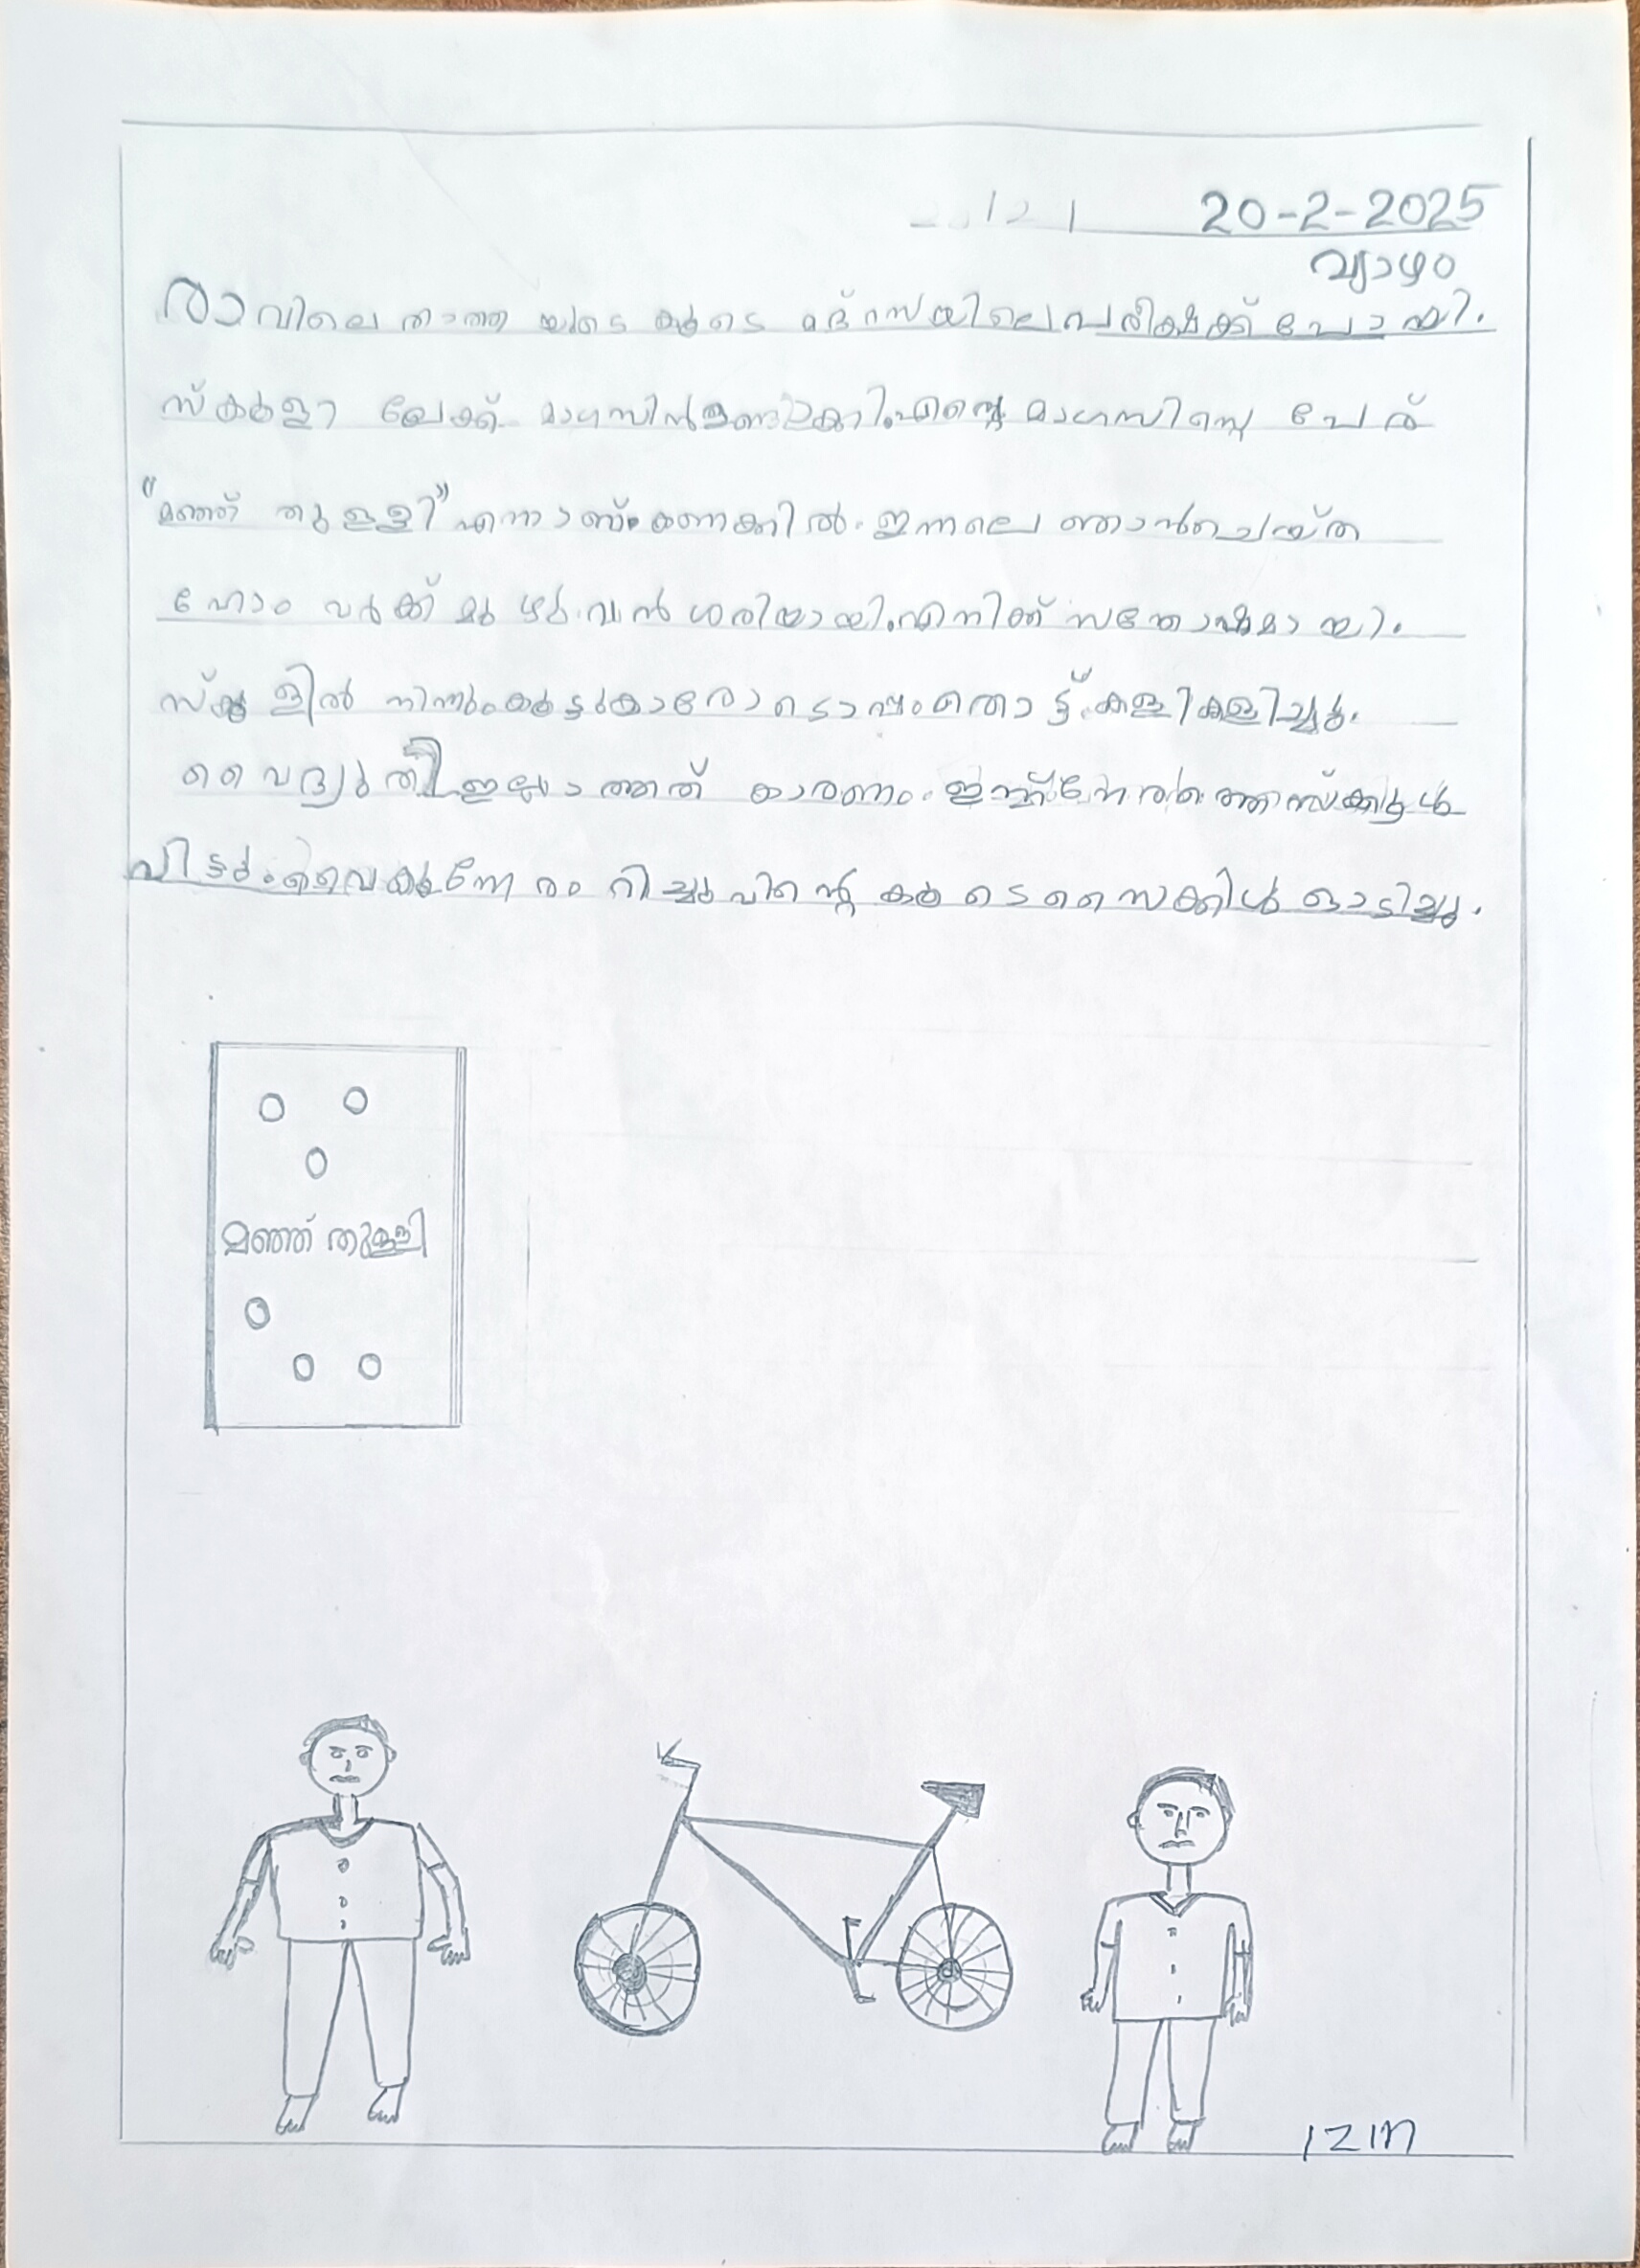 20-2-2025
വ്യാഴം
രാവിലെ താത്തയുടെ കൂടെ മദ്റസയിലെ പരീക്ഷക്ക് പോയി.
സ്കൂളി ലേക്ക് മാഗസിൻ ഉണ്ടാക്കി. എന്റെ മാഗസിന്റെ പേര്
"മഞ്ഞ് തുള്ളി" എന്നാണ്. കണക്കിൽ ഇന്നലെ ഞാൻ ചെയ്ത
ഹോം വർക്ക് മുഴുവൻ ശരിയായി. എനിക്ക് സന്തോഷമായി.
സ്കൂളിൽ നിന്നും കൂട്ടുകാരോടൊപ്പം തൊട്ട് കളി കളിച്ചു.
വൈദ്യുതി ഇല്ലാത്തത് കാരണം ഇന്ന് നേരത്തെ സ്ക്കൂൾ
വിട്ടു. വൈകുന്നേരം റിച്ചുവിന്റെ കൂടെ സൈക്കിൾ ഓടിച്ചു.
മഞ്ഞ് തുള്ളി
IZIN